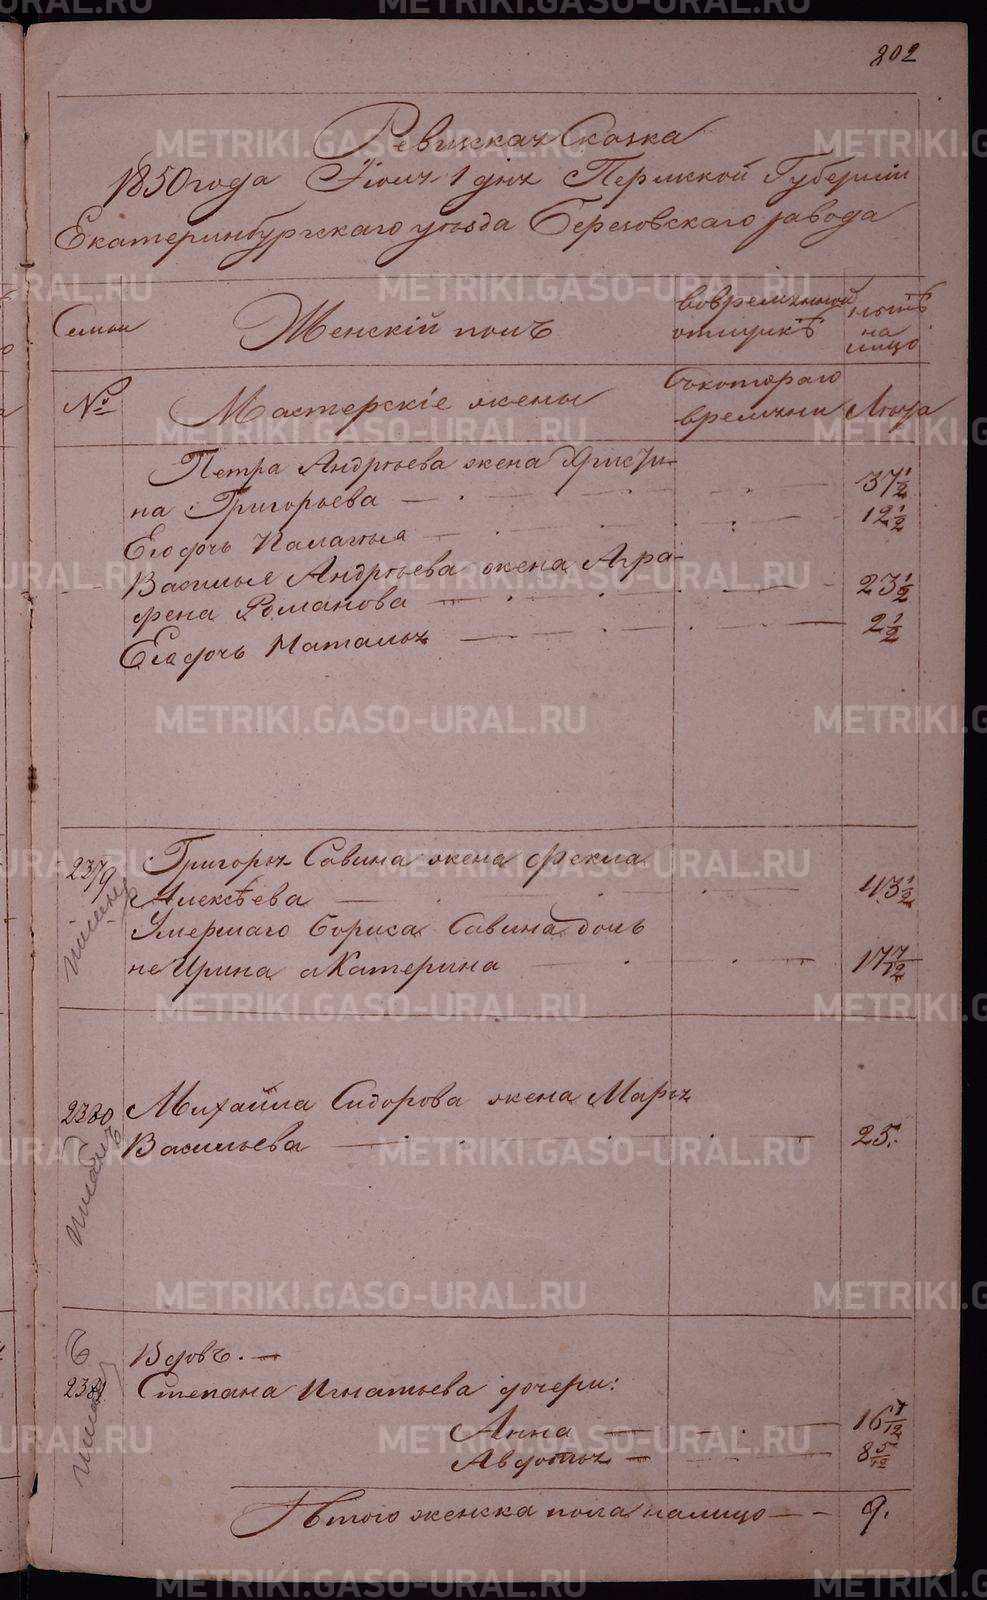 202
Ревизская Сказка
1850 года Июня 1 дня Пермской Губернии
Екатеринбургскаго уѣзда Березовскаго завода
Семьи
Женскій полъ
вовременной отлучкѣ
нынѣ на лицо
№
Мастерскіе жены
Съкотораго времени
Лѣта
Петра Андрѣева жена Христи-
на Григорьева 37 1/2
Его дочь Палагѣя 12 1/2
Василья Андрѣева жена Агра-
фена Романова 23 1/2
Его дочь Наталья 2 1/2
2379
Григорья Савина жена Фекла
Алексѣева 43 1/2
Умершаго Бориса Савина дочь
не Ирина а Катерина 17 7/12
2380
Михайла Сидорова жена Марья
Васильева 25.
2381
Вдовъ.
Степана Игнатьева дочери:
Анна 16 7/12
Авдотья 8 5/12
Итого женска пола налицо 9.
METRIKI.GASO-URAL.RU